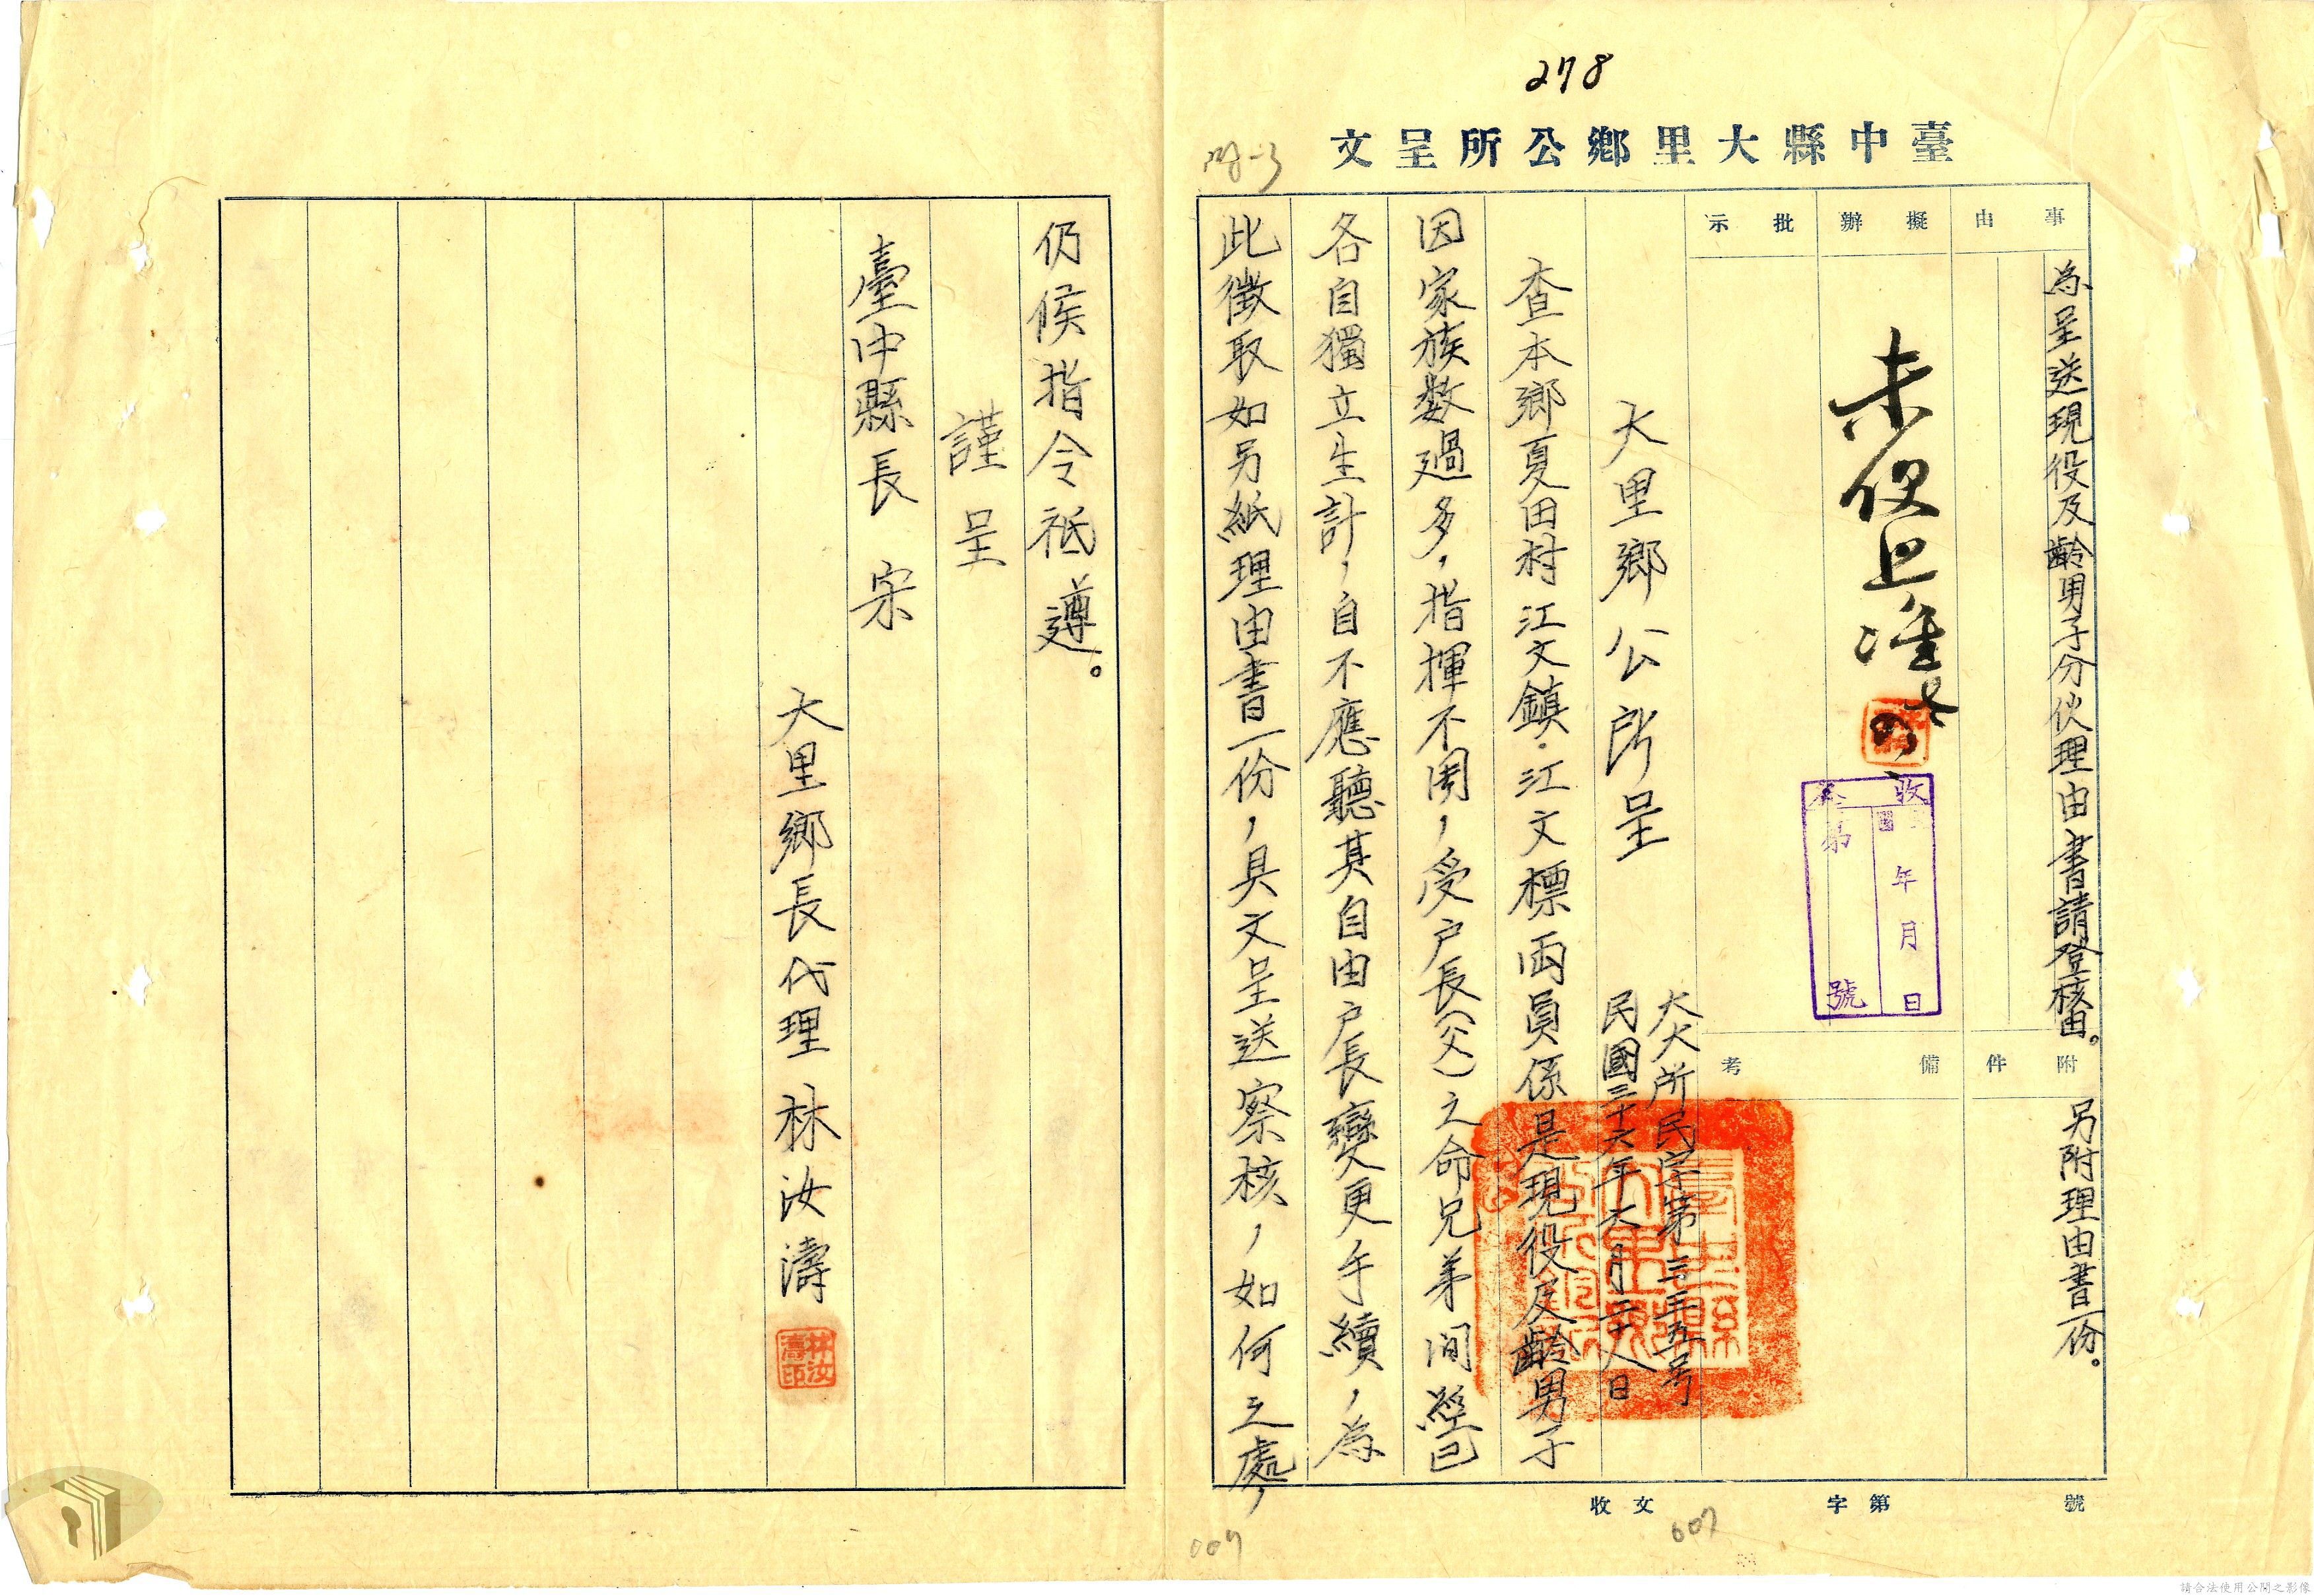 278
臺中縣大里鄉公所呈文
事由
為呈送現役及齡男子分伙理由書請登核由。
附件
另附理由書一份。
擬辦
未便照准
批示
備考
收文
年月日
第號
大大所民字第三三五号
民國三十六年六月二十八日
大里鄉公所呈
查本鄉夏田村江文鎮．江文標兩員係是現役及齡男子
因家族数過多，指揮不周，受户長（父）之命兄弟间經已
各自獨立生計，自不應聽其自由户長變更手續，為
此徵取如另紙理由書一份，具文呈送察核，如何之處，
仍候指令祗遵。
謹呈
臺中縣長 宋
大里鄉長代理 林汝濤
林汝濤印
收文 字第 號
007
007
請合法使用公開之影像